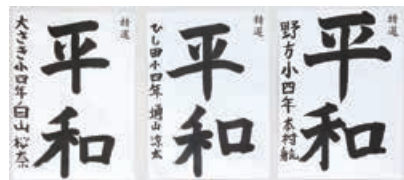 精選
平和
大さき小四年
白山
精選
平和
ひし田小四年
凉太
精選
平和
野方小四年
本村航